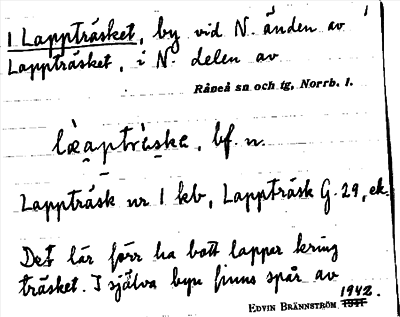 1 Lappträsket, by vid N. änden av
Lappträsket, i N. delen av
Råneå sn och tg, Norrb. l.
lὰaptrὰska, bf. n.
Lappträsk nr 1 kb, Lappträsk G. 29, ek.
Det lär förr ha bott lapper kring
träsket. I själva byn finns spår av
EDVIN BRÄNNSTRÖM 1942.